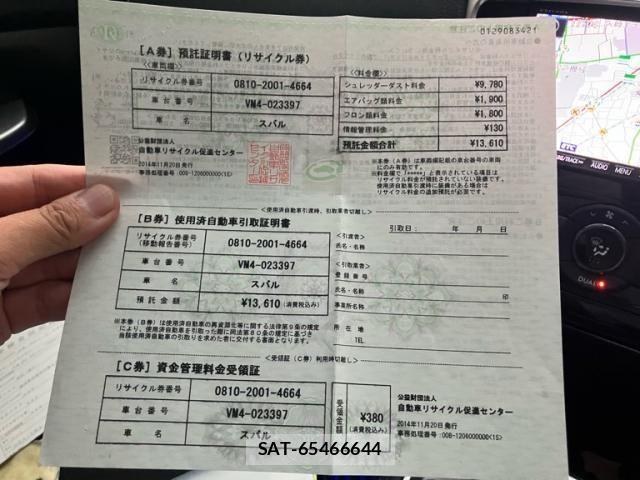 0129083421
[A券] 預託証明書(リサイクル券)
<<車両欄>>
リサイクル券番号 0810-2001-4664
車台番号 VM4-023397
車名 スバル
<<料金欄>>
シュレッダーダスト料金 ¥9,780
エアバッグ類料金 ¥1,900
フロン類料金 ¥1,800
情報管理料金 ¥130
預託金額合計 ¥13,610
公益財団法人
自動車リサイクル促進センター
2014年11月20日発行
事務処理番号:00B-1206000000<1S>
※本券(A券)は車両欄記載の車台番号の車両
にのみ有効です。
※料金欄で「*****」と表示されている項目は
リサイクル料金が預託されていない装備です。
使用済自動車引渡時に装備がある場合は
リサイクル料金の追加預託が必要です。
<使用済自動車引渡時、引取業者切離し>
[B券] 使用済自動車引取証明書
引取日: 年 月 日
リサイクル券番号
(移動報告番号) 0810-2001-4664
車台番号 VM4-023397
車名 スバル
預託金額 ¥13,610 (消費税込み)
<引渡者>
氏名・名称
<引取業者>
登録番号
氏名・名称 印
事業所名称
所在地
TEL
※本券(B券)は使用済自動車の再資源化等に関する法律第9条の規定
により、使用済自動車を引取った際に同法第80条の規定に基づき
当該使用済自動車の引取りを求めた者に交付する書面となります。
<受領証(C券)利用時切離し>
[C券] 資金管理料金受領証
リサイクル券番号 0810-2001-4664
車台番号 VM4-023397
車名 スバル
受領金額 ¥380
(消費税込み)
公益財団法人
自動車リサイクル促進センター
2014年11月20日発行
事務処理番号:00B-1206000000<1S>
SAT-65466644
AUDIO
MENU
DUAL